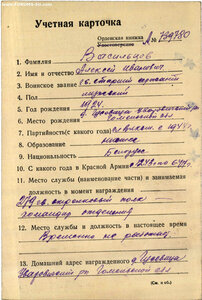 Учетная карточка
Орденская книжка
Удостоверение
А № 789780
1. Фамилия Васильцов
2. Имя и отчество Алексей Иванович
3. Воинское звание старший сержант
4. Пол мужской
5. Год рождения 1924
6. Место рождения д.
Гомельской обл
7. Партийность (с какого года) с 1944
8. Образование низшее
9. Национальность Белорус
10. С какого года в Красной Армии с 1943 по
11. Место службы (наименование части) и занимаемая
должность в момент награждения
стрелковый полк —
командир отделения
12. Место службы и должность в настоящее время
Временно не работает
13. Домашний адрес награжденного д.
Уваровичский р-н Гомельской обл
(См. н об.)